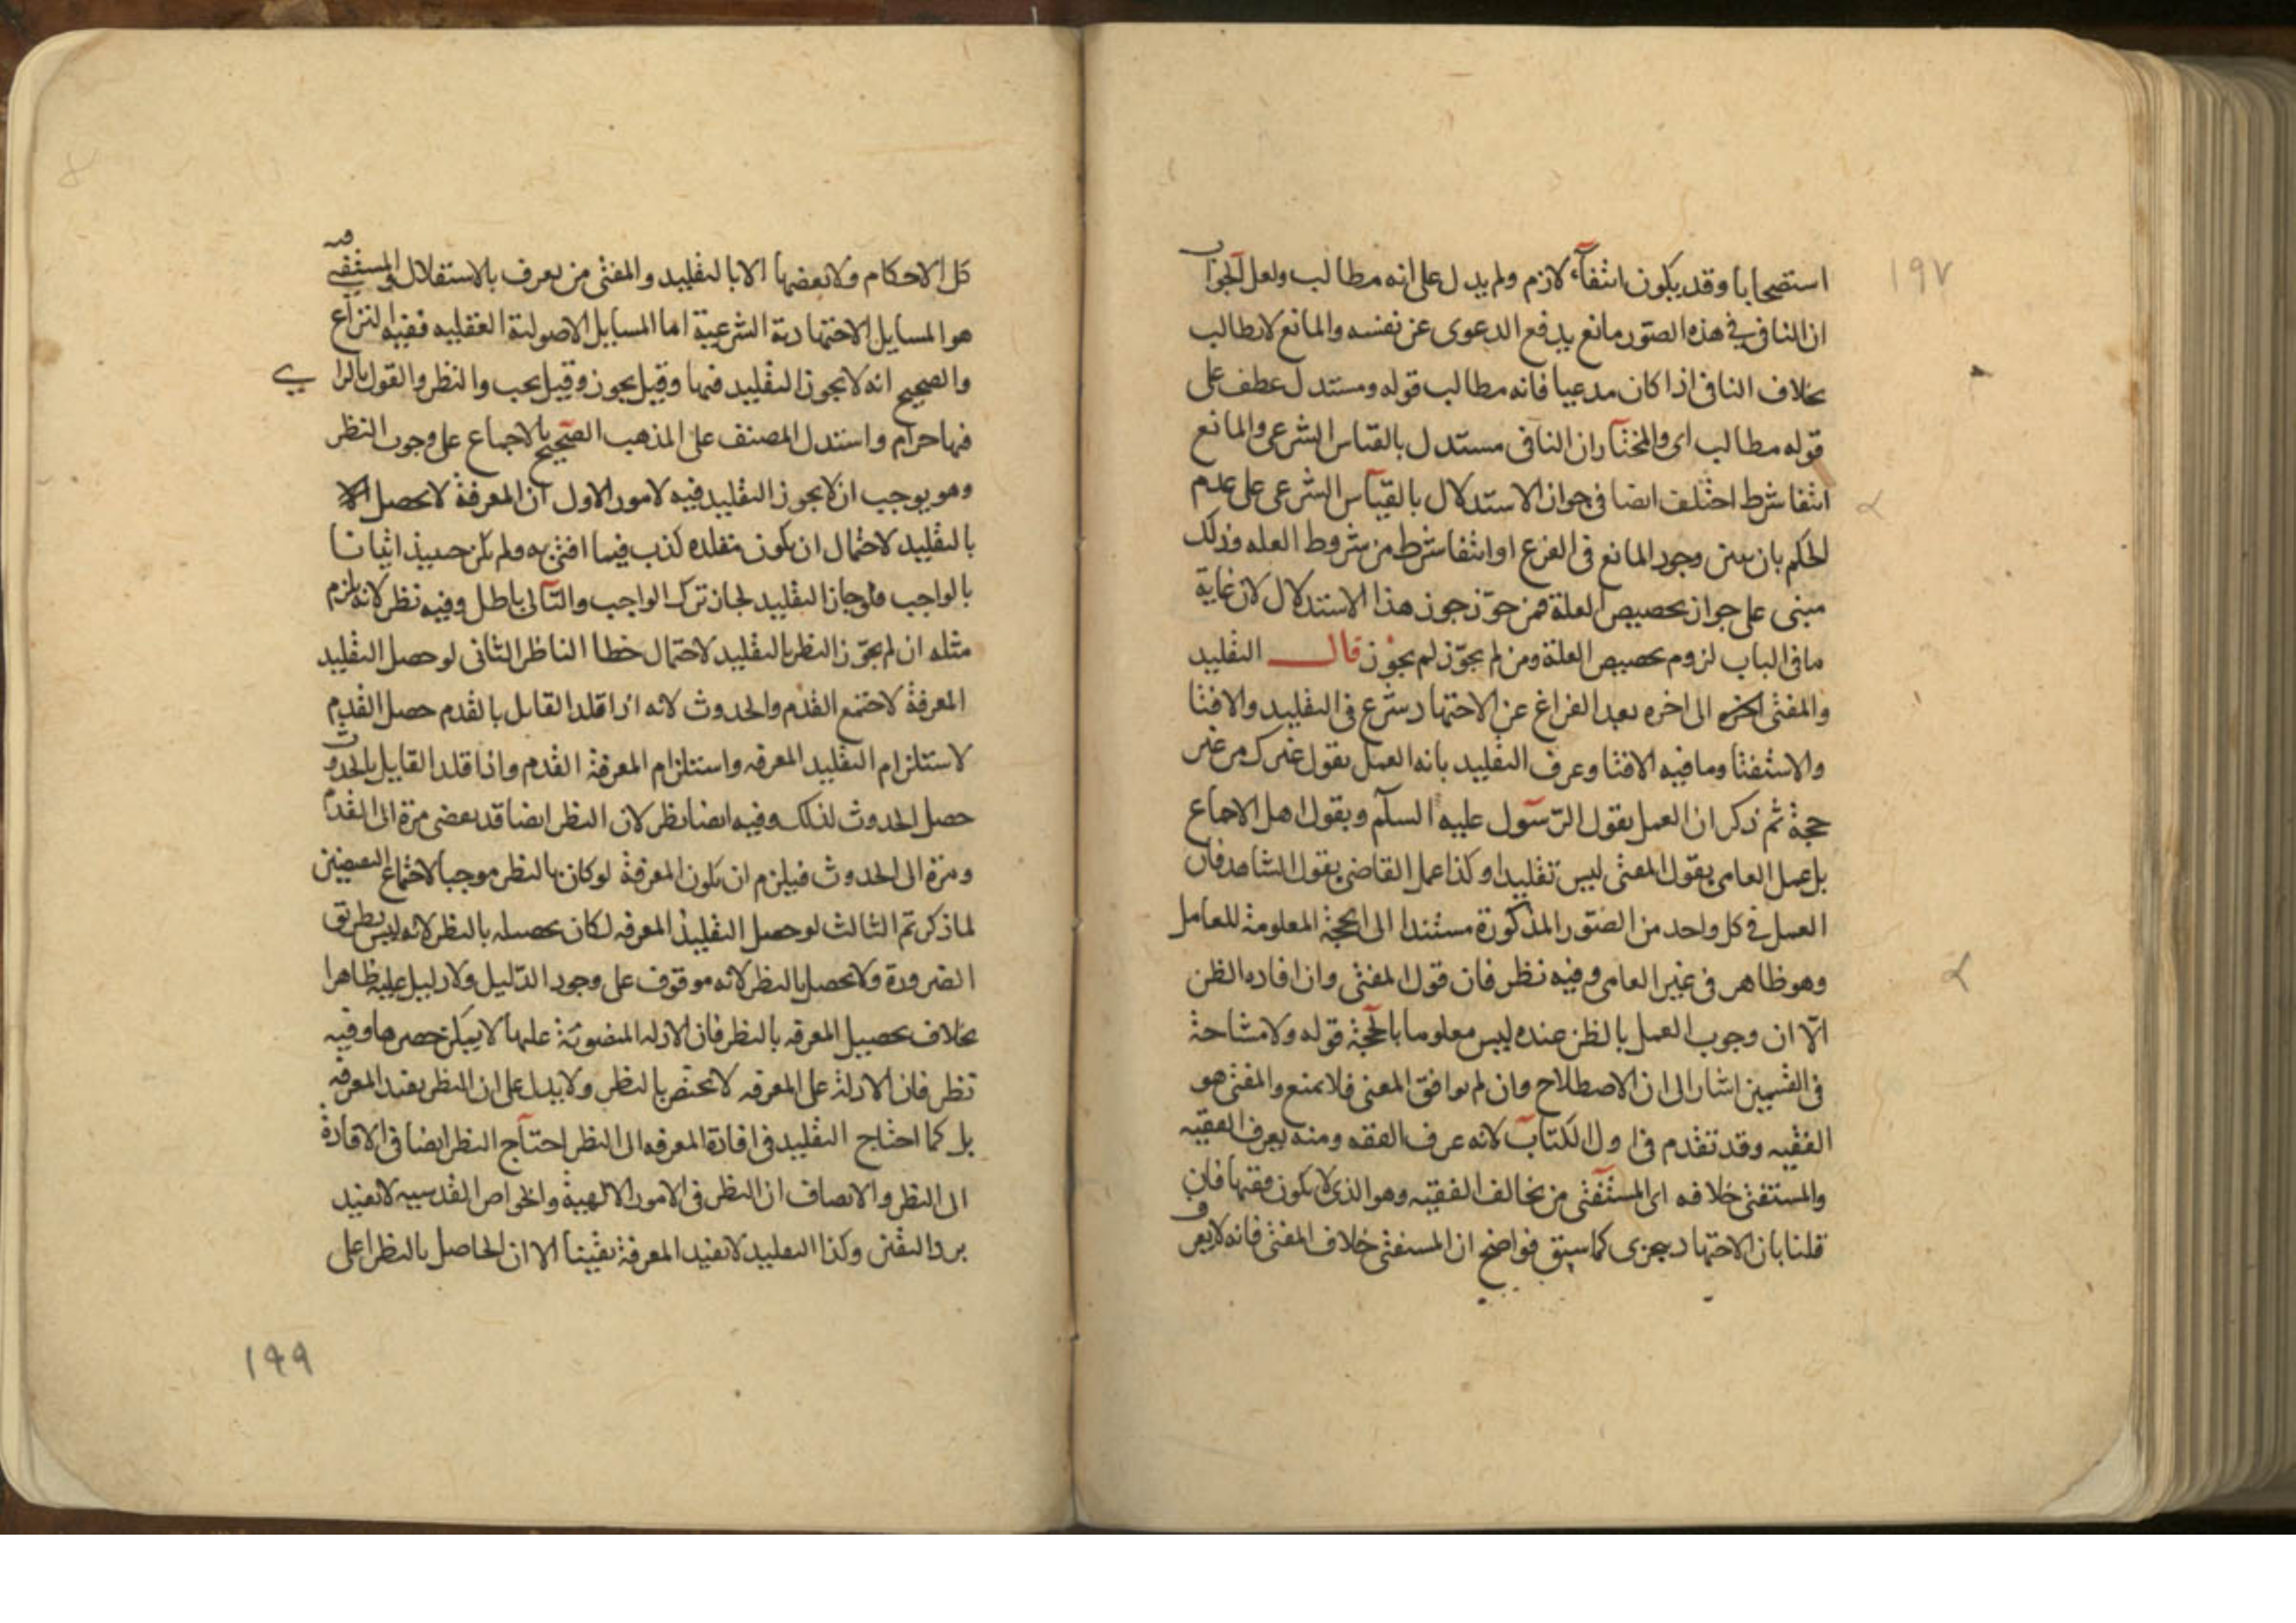 ١٩٧
استصحابا وقد يكون انتفاء لازم ولم يدل على انه مطالب ولعل الجواب
ان النافى فى هذه الصور مانع يدفع الدعوى عن نفسه والمانع لا يطالب
بخلاف النافى اذا كان مدعيا فانه مطالب قوله ومستدل عطف على
قوله مطالب اى والمختار ان النافى مستدل بالقياس الشرعى والمانع
انتفا شرط اختلف ايضا فى جواز الاستدلال بالقياس الشرعى على عدم
الحكم بان يبين وجود المانع فى الفرع او انتفا شرط من شروط العله وذلك
مبنى على جواز تخصيص العلة فمن جوّز جوز هذا الاستدلال لان غاية
ما فى الباب لزوم تخصيص العلة ومن لم يجوّز لم يجوز قال التقليد
والمفتى الى اخره بعد الفراغ عن الاجتهاد شرع فى التقليد والافتا
والاستفتا وما فيه الافتا وعرف التقليد بانه العمل بقول غيرك من غير
حجة ثم ذكر ان العمل بقول الرّسول عليه السلم وبقول اهل الاجماع
بل عمل العامى بقول المفتى ليس تقليدا وكذا عمل القاضى بقول الشاهد فان
العمل فى كل واحد من الصّور المذكورة مستندا الى الحجة المعلومة للعامل
وهو ظاهر فى غير العامى وفيه نظر فان قول المفتى وان افاده الظن
الّا ان وجوب العمل بالظن عنده ليس معلوما بالحجة قوله ولا مشاحة
فى القسمين اشار الى ان الاصطلاح وان لم يوافق المعنى فلا يمنع والمفتى هو
الفقيه وقد تقدم فى اول الكتاب لانه عرف الفقه ومنه يعرف الفقيه
والمستفتى خلافه اى المستفتى من يخالف الفقيه وهو الذى لا يكون فقيها فان
قلنا بان الاجتهاد يتجزى كما سبق فواضح ان المستفتى خلاف المفتى فانه لا يعرف
كل الاحكام ولا بعضها الا بالتقليد والمفتى من يعرف بالاستقلال والمستفتى فيه
هو المسايل الاجتهادية الشرعية اما المسايل الاصولية العقليه ففيها النزاع
والصحيح انه لا يجوز التقليد فيها وقيل يجوز وقيل يجب والنظر والقول بالراى
فيها حرام واستدل المصنف على المذهب الصّحيح بالاجماع على وجوب النظر
وهو يوجب ان لا يجوز التقليد فيه لامور الاول ان المعرفة لا تحصل
بالتقليد لاحتمال ان يكون مقلده كذب فيما افتى به ولم يكن حينيذ اتيانا
بالواجب فلو جاز التقليد لجاز ترك الواجب والتالى باطل وفيه نظر لانه يلزم
مثله ان لم يجوّز النظر بالتقليد لاحتمال خطا الناظر الثانى لو حصل التقليد
المعرفة لاجتمع القدم والحدوث لانه اذا قلد القايل بالقدم حصل القدم
لاستلزام التقليد المعرفه واستلزام المعرفة القدم واذا قلد القايل بالحدوث
حصل الحدوث لذلك وفيه ايضا نظر لان النظر ايضا قد يفضى مرة الى القدم
ومرة الى الحدوث فيلزم ان يكون المعرفة لو كان بالنظر موجبا لاجتماع النقيضين
لما ذكرتم الثالث لو حصل التقليد المعرفه لكان تحصيله بالنظر لانه ليس بطريق
الضرورة ولا يحصل بالنظر لانه موقوف على وجود الدّليل ولا دليل عليه ظاهرا
بخلاف تحصيل المعرفه بالنظر فان الادله المنصوبة عليها لا يمكن حصرها وفيه
نظر فان الادلة على المعرفه لا تختص بالنظر ولا يدل على ان النظر يفيد المعرفه
بل كما احتاج التقليد فى افادة المعرفه الى النظر احتاج النظر ايضا فى الافادة
الى النظر والانصاف ان النظر فى الامور الالهية والخواص القدسيه لا يفيد
برد اليقين وكذا التقليد لا يفيد المعرفة يقينا الا ان الحاصل بالنظر اعلى
١٩٩